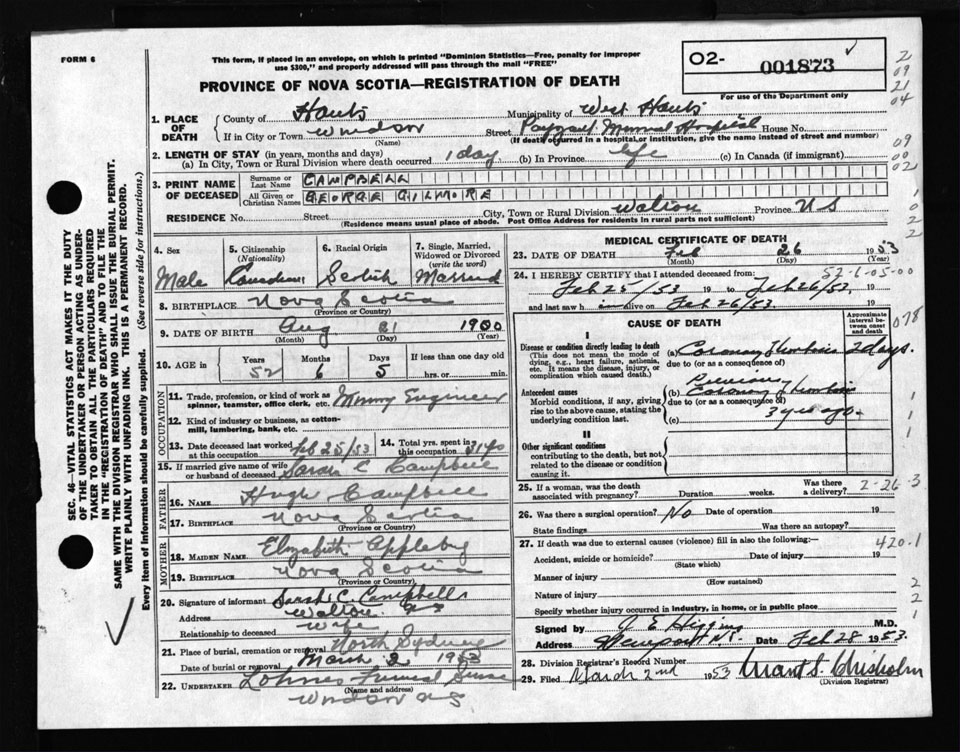 FORM 6
This form, if placed in an envelope, on which is printed "Dominion Statistics—Free, penalty for improper
use $300," and properly addressed will pass through the mail "FREE"
O2- 001873
For use of the Department only
2
09
21
04
09
00
02
1
0
2
PROVINCE OF NOVA SCOTIA—REGISTRATION OF DEATH
1. PLACE OF DEATH
County of Hants Municipality of West Hants
If in City or Town Windsor Street Payzant Memorial Hospital House No.
(Name) (If death occurred in a hospital or institution, give the name instead of street and number)
2. LENGTH OF STAY (in years, months and days)
(a) In City, Town or Rural Division where death occurred 1 day (b) In Province life (c) In Canada (if immigrant)
3. PRINT NAME OF DECEASED
Surname or Last Name CAMPBELL
All Given or Christian Names GEORGE GILMORE
RESIDENCE No. Street City, Town or Rural Division Walton Province N S
(Residence means usual place of abode. Post Office Address for residents in rural parts not sufficient)
4. Sex
Male
5. Citizenship
(Nationality)
Canadian
6. Racial Origin
Scotish
7. Single, Married, Widowed or Divorced
(write the word)
Married
8. BIRTHPLACE Nova Scotia
(Province or Country)
9. DATE OF BIRTH Aug 21 1900
(Month) (Day) (Year)
10. AGE in Years Months Days If less than one day old
52 6 5 hrs. or min.
OCCUPATION
11. Trade, profession, or kind of work as
spinner, teamster, office clerk, etc. Mining Engineer
12. Kind of industry or business, as cotton-
mill, lumbering, bank, etc.
13. Date deceased last worked
at this occupation Feb 25/53
14. Total yrs. spent in
this occupation 31 yrs
15. If married give name of wife
or husband of deceased Sarah C Campbell
FATHER
16. NAME Hugh Campbell
17. BIRTHPLACE Nova Scotia
(Province or Country)
MOTHER
18. MAIDEN NAME Elizabeth Appleby
19. BIRTHPLACE Nova Scotia
(Province or Country)
20. Signature of informant Sarah C. Campbell
Address Walton NS
Relationship to deceased Wife
21. Place of burial, cremation or removal North Sydney
Date of burial or removal March 2 1953
22. UNDERTAKER Lohnes Funeral
(Name and address)
Windsor N S
MEDICAL CERTIFICATE OF DEATH
23. DATE OF DEATH Feb 26 1953
(Month) (Day) (Year)
24. I HEREBY CERTIFY that I attended deceased from 52-6-05-00
Feb 25/53 19 to Feb 26/53. 19
and last saw h im alive on Feb 26/53. 19
078
CAUSE OF DEATH
Approximate interval between onset and death
I
Disease or condition directly leading to death
(This does not mean the mode of
dying, e.g., heart failure, asthenia,
etc. It means the disease, injury, or
complication which caused death.)
(a) Coronary Thrombosis 2 days
due to (or as a consequence of)
Antecedent causes
Morbid conditions, if any, giving
rise to the above cause, stating the
underlying condition last.
Previous
(b) Coronary Thrombosis
due to (or as a consequence of)
3 yrs ago.
(c)
1
1
II
Other significant conditions
contributing to the death, but not
related to the disease or condition
causing it.
25. If a woman, was the death
associated with pregnancy? Duration weeks. Was there
a delivery? 2-26-3
26. Was there a surgical operation? No Date of operation 19
State findings Was there an autopsy?
27. If death was due to external causes (violence) fill in also the following:— 420.1
Accident, suicide or homicide? Date of injury 19
(State which)
Manner of injury
(How sustained)
2
Nature of injury
2
Specify whether injury occurred in industry, in home, or in public place
1
Signed by J E Higgins M.D.
Address Newport N.S. Date Feb 28 1953.
28. Division Registrar's Record Number
29. Filed March 2nd 1953 Chisholm
(Division Registrar)
SEC. 46—VITAL STATISTICS ACT MAKES IT THE DUTY
OF THE UNDERTAKER OR PERSON ACTING AS UNDER-
TAKER TO OBTAIN ALL THE PARTICULARS REQUIRED
IN THE "REGISTRATION OF DEATH" AND TO FILE THE
SAME WITH THE DIVISION REGISTRAR WHO SHALL ISSUE THE BURIAL PERMIT.
WRITE PLAINLY WITH UNFADING INK. THIS IS A PERMANENT RECORD.
Every item of information should be carefully supplied. (See reverse side for instructions.)